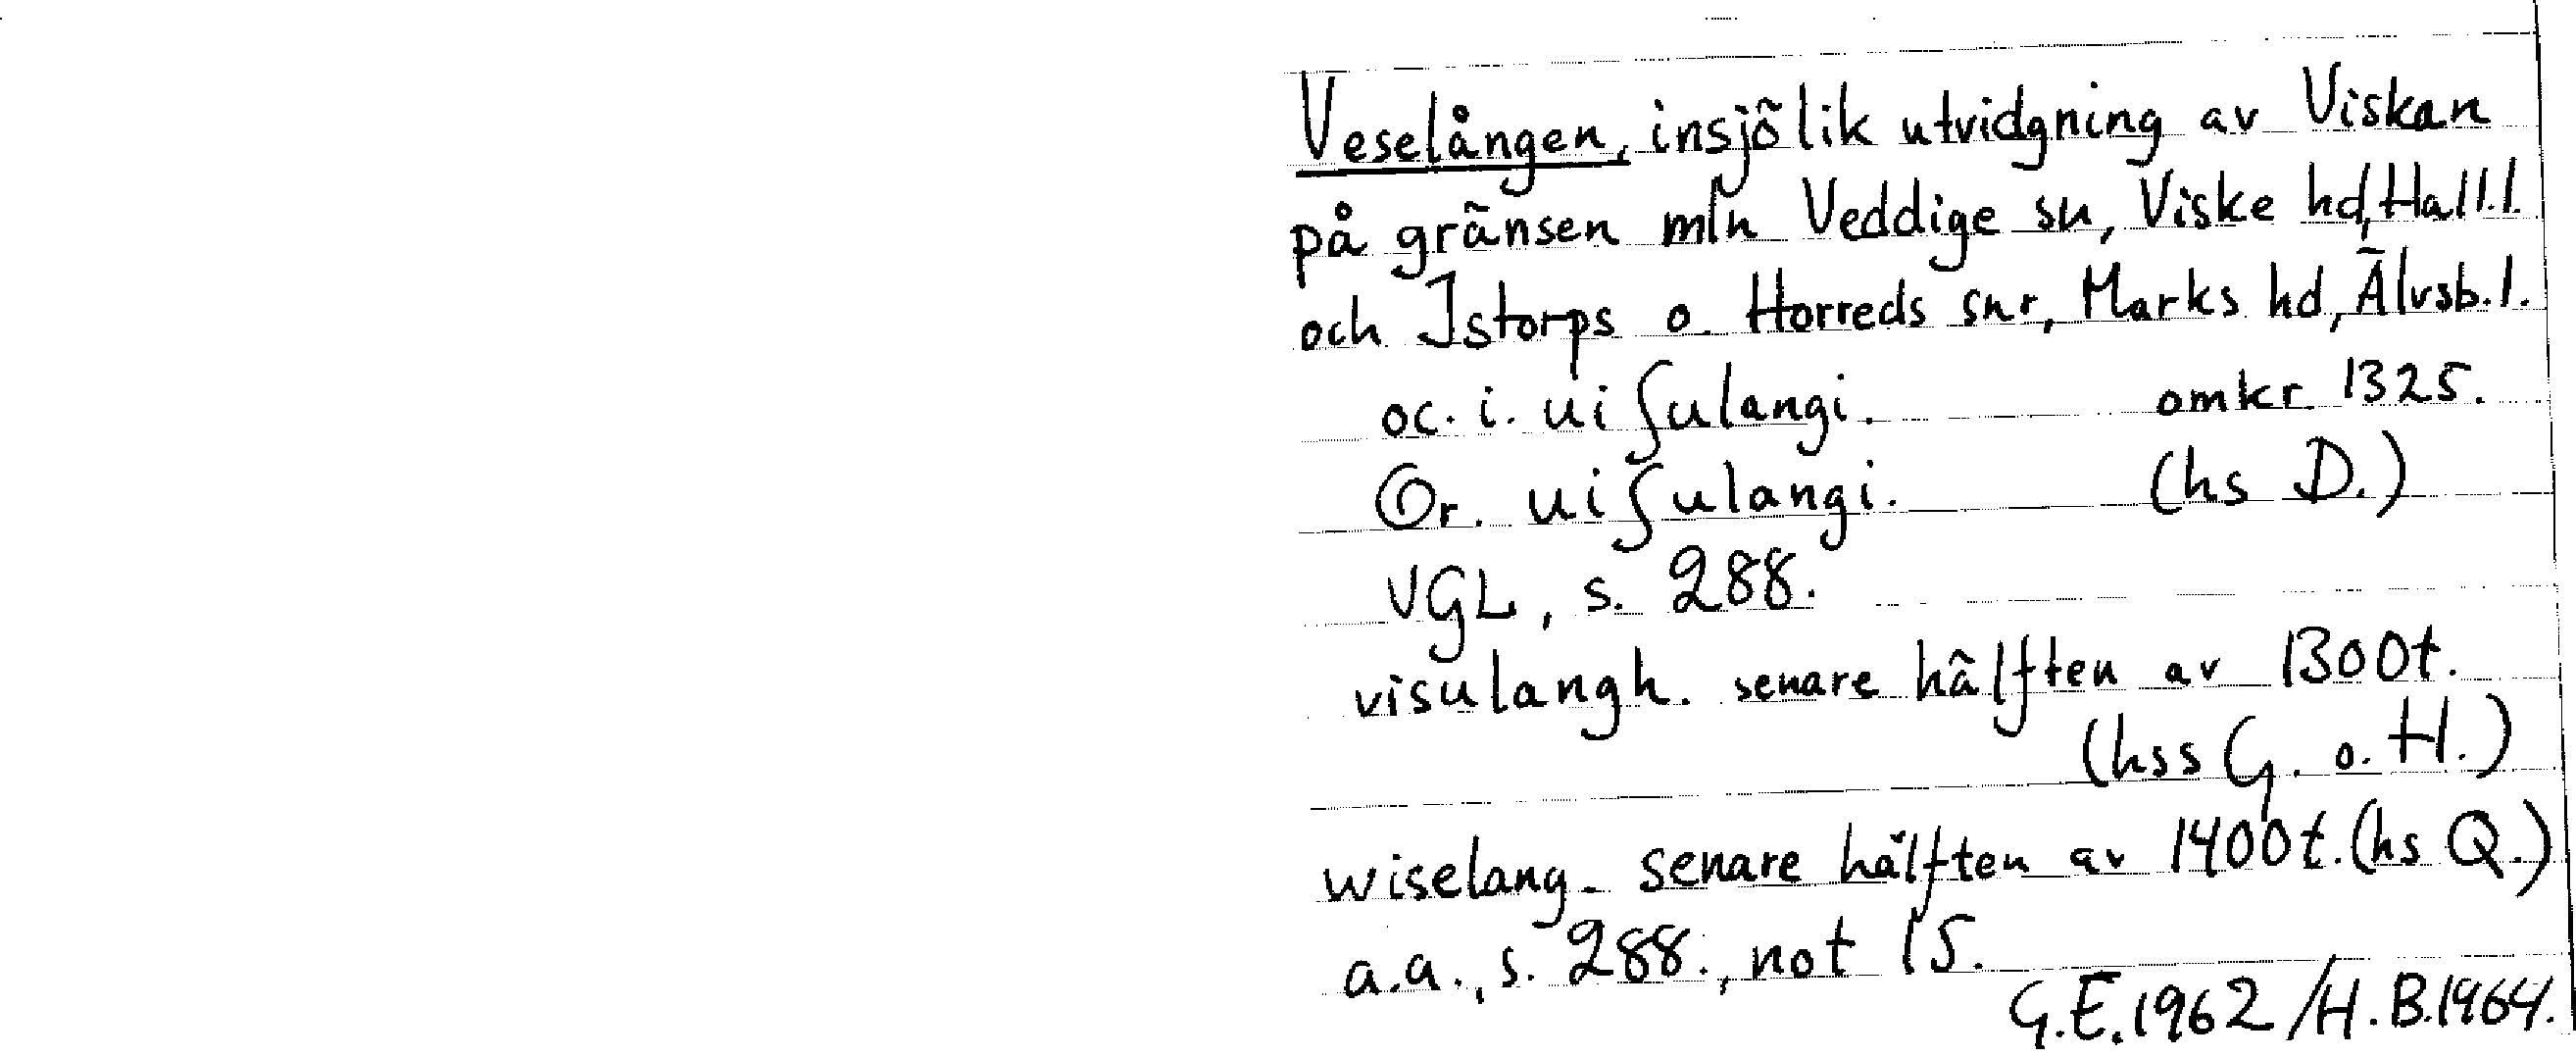 Veselången, insjölik utvidgning av Viskan
på gränsen mln Veddige sn, Viske hd, Hall.l.
och Istorps o. Horreds snr, Marks hd, Älvsb.l.
oc. i. uiſulangi. omkr. 1325.
Or. uiſulangi. (hs D.)
VGL, s. 288.
visulangh. senare hälften av 1300t.
(hss G. o. H.)
wiselang. senare hälften av 1400t. (hs Q.)
a.a., s. 288., not 15.
G.E. 1962 / H.B. 1964.